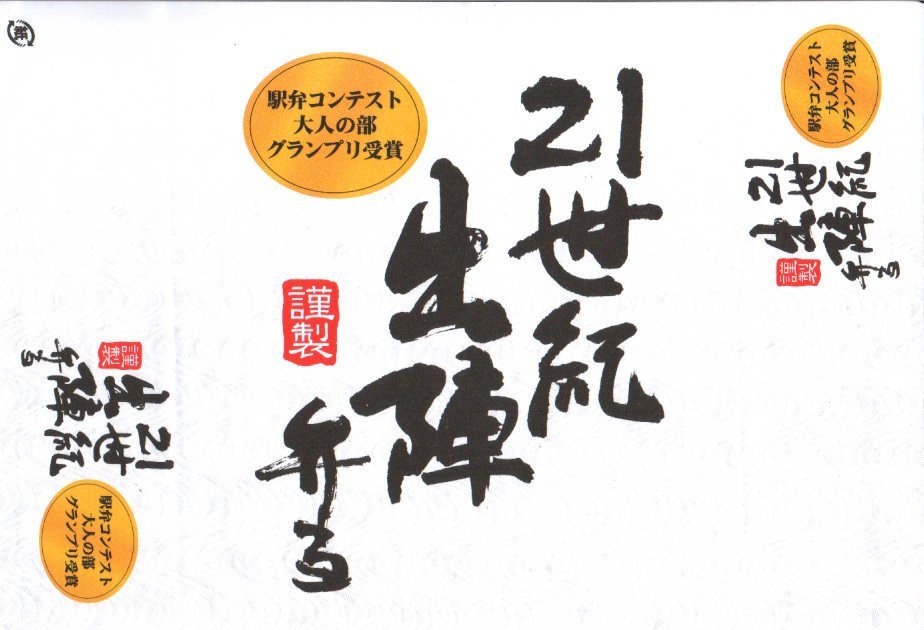 紙
駅弁コンテスト
大人の部
グランプリ受賞
21世紀
出陣
弁当
謹製
駅弁コンテスト
大人の部
グランプリ受賞
21世紀
出陣
弁当
謹製
駅弁コンテスト
大人の部
グランプリ受賞
21世紀
出陣
弁当
謹製